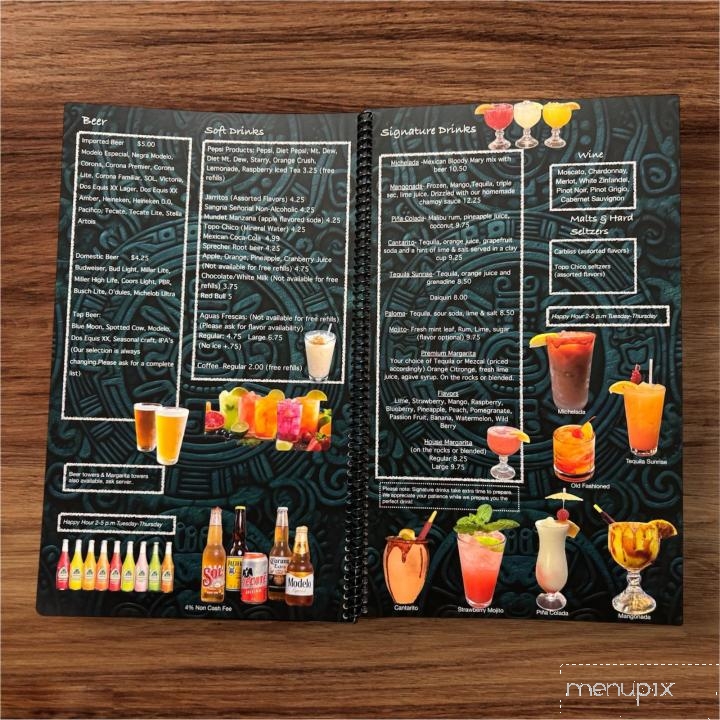 Beer
Imported Beer $5.00
Modelo Especial, Negra Modelo,
Corona, Corona Premier, Corona
Lite, Corona Familiar, SOL, Victoria,
Dos Equis XX Lager, Dos Equis XX
Amber, Heineken, Heineken 0.0,
Pacifico, Tecate, Tecate Lite, Stella
Artois
Domestic Beer $4.25
Budweiser, Bud Light, Miller Lite,
Miller High Life, Coors Light, PBR,
Busch Lite, O'dules, Michelob Ultra
Tap Beer:
Blue Moon, Spotted Cow, Modelo,
Dos Equis XX, Seasonal craft, IPA's
(Our selection is always
changing.Please ask for a complete
list)
Beer towers & Margarita towers
also available, ask server.
Happy Hour 2-5 p.m Tuesday-Thursday
Soft Drinks
Pepsi Products: Pepsi, Diet Pepsi, Mt. Dew,
Diet Mt. Dew, Starry, Orange Crush,
Lemonade, Raspberry Iced Tea 3.25 (free
refills)
Jarritos (Assorted Flavors) 4.25
Sangria Señorial Non-Alcoholic 4.25
Mundet Manzana (apple flavored soda) 4.25
Topo Chico (Mineral Water) 4.25
Mexican Coca-Cola 4.99
Sprecher Root beer 4.25
Apple, Orange, Pineapple, Cranberry Juice
(Not available for free refills) 4.75
Chocolate/White Milk (Not available for free
refills) 3.75
Red Bull 5
Aguas Frescas: (Not available for free refills)
(Please ask for flavor availability)
Regular: 4.75 Large 6.75
(No ice +.75)
Coffee Regular 2.00 (free refills)
Sol
TECATE
Corona
Extra
Modelo
Especial
4% Non Cash Fee
Signature Drinks
Michelada -Mexican Bloody Mary mix with
beer 10.50
Mangonada- Frozen, Mango,Tequila, triple
sec, lime juice. Drizzled with our homemade
chamoy sauce 12.25
Piña Colada- Malibu rum, pineapple juice,
coconut 9.75
Cantarito- Tequila, orange juice, grapefruit
soda and a hint of lime & salt served in a clay
cup 9.25
Tequila Sunrise- Tequila, orange juice and
grenadine 8.50
Daiquiri 8.00
Paloma- Tequila, sour soda, lime & salt 8.50
Mojito- Fresh mint leaf, Rum, Lime, sugar
(flavor optional) 9.75
Premium Margarita
Your choice of Tequila or Mezcal (priced
accordingly) Orange Citronge, fresh lime
juice, agave syrup. On the rocks or blended.
Flavors
Lime, Strawberry, Mango, Raspberry,
Blueberry, Pineapple, Peach, Pomegranate,
Passion Fruit, Banana, Watermelon, Wild
Berry
House Margarita
(on the rocks or blended)
Regular 8.25
Large 9.75
Please note: Signature drinks take extra time to prepare.
We appreciate your patience while we prepare you the
perfect drink!
Wine
Moscato, Chardonnay,
Merlot, White Zinfandel,
Pinot Noir, Pinot Grigio,
Cabernet Sauvignon
Malts & Hard
Seltzers
Carbliss (assorted flavors)
Topo Chico seltzers
(assorted flavors)
Happy Hour 2-5 p.m Tuesday-Thursday
Michelada
Tequila Sunrise
Old Fashioned
Cantarito
Strawberry Mojito
Piña Colada
Mangonada
menupix